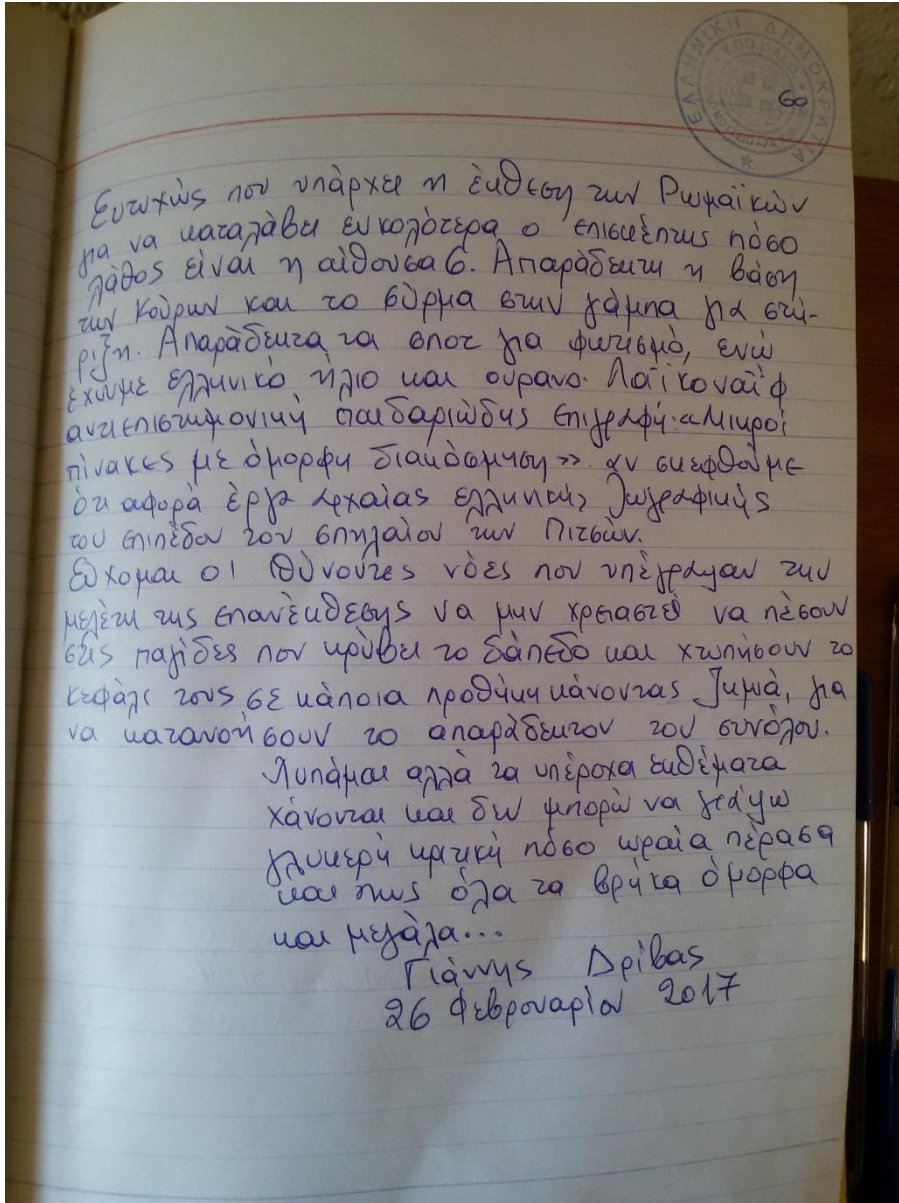 ΕΛΛΗΝΙΚΗ ΔΗΜΟΚΡΑΤΙΑ
60
Ευτυχώς που υπάρχει η έκθεση των Ρωμαϊκών
για να καταλάβει ευκολότερα ο επισκέπτης πόσο
λάθος είναι η αίθουσα 6. Απαράδεκτη η βάση
των Κούρων και το σύρμα στην γάμπα για στή-
ριξη. Απαράδεκτα τα σποτ για φωτισμό, ενώ
έχουμε ελληνικό ήλιο και ουρανό. Λαϊκοναΐφ
αντιεπιστημονική παιδαριώδης επιγραφή: «Μικροί
πίνακες με όμορφη διακόσμηση» αν σκεφθούμε
ότι αφορά έργα αρχαίας ελληνικής ζωγραφικής
του επιπέδου του σπηλαίου των Πιτσών.
Εύχομαι οι θύνοντες νόες που υπέγραψαν την
μελέτη της επανέκθεσης να μην χρειαστεί να πέσουν
στις παγίδες που κρύβει το δάπεδο και χτυπήσουν το
κεφάλι τους σε κάποια προθήκη κάνοντας ζημιά, για
να κατανοήσουν το απαράδεκτον του συνόλου.
Λυπάμαι αλλά τα υπέροχα εκθέματα
χάνονται και δεν μπορώ να γράψω
γλυκερή κριτική πόσο ωραία πέρασα
και πως όλα τα βρήκα όμορφα
και μεγάλα...
Γιάννης Δρίβας
26 Φεβρουαρίου 2017